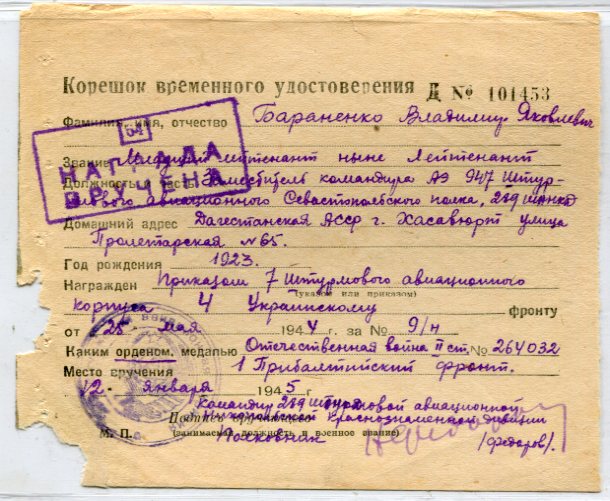 Корешок временного удостоверения Д № 101453
Фамилия, имя, отчество Бараненко Владимир Яковлевич
54
НАГРАДА
ВРУЧЕНА
Звание Младший лейтенант ныне Лейтенант
Должность и часть Заместитель командира АЭ 947 Штур-
мового авиационного Севастопольского полка, 289
Домашний адрес Дагестанская АССР г. Хасавюрт улица
Пролетарская № 65.
Год рождения 1923.
Награжден Приказом 7 Штурмового авиационного
(указом или приказом)
корпуса 4 Украинскому фронту
от "25" мая 1944 г. за № 9/н
Каким орденом, медалью Отечественная война II ст. № 264032
Место вручения 1 Прибалтийский фронт.
12 января 1945 г.
Командир 289 штурмовой авиационной
Подпись вручающего
Краснознаменной дивизии
М. П. (занимаемая должность и военное звание)
Полковник /Федоров/.